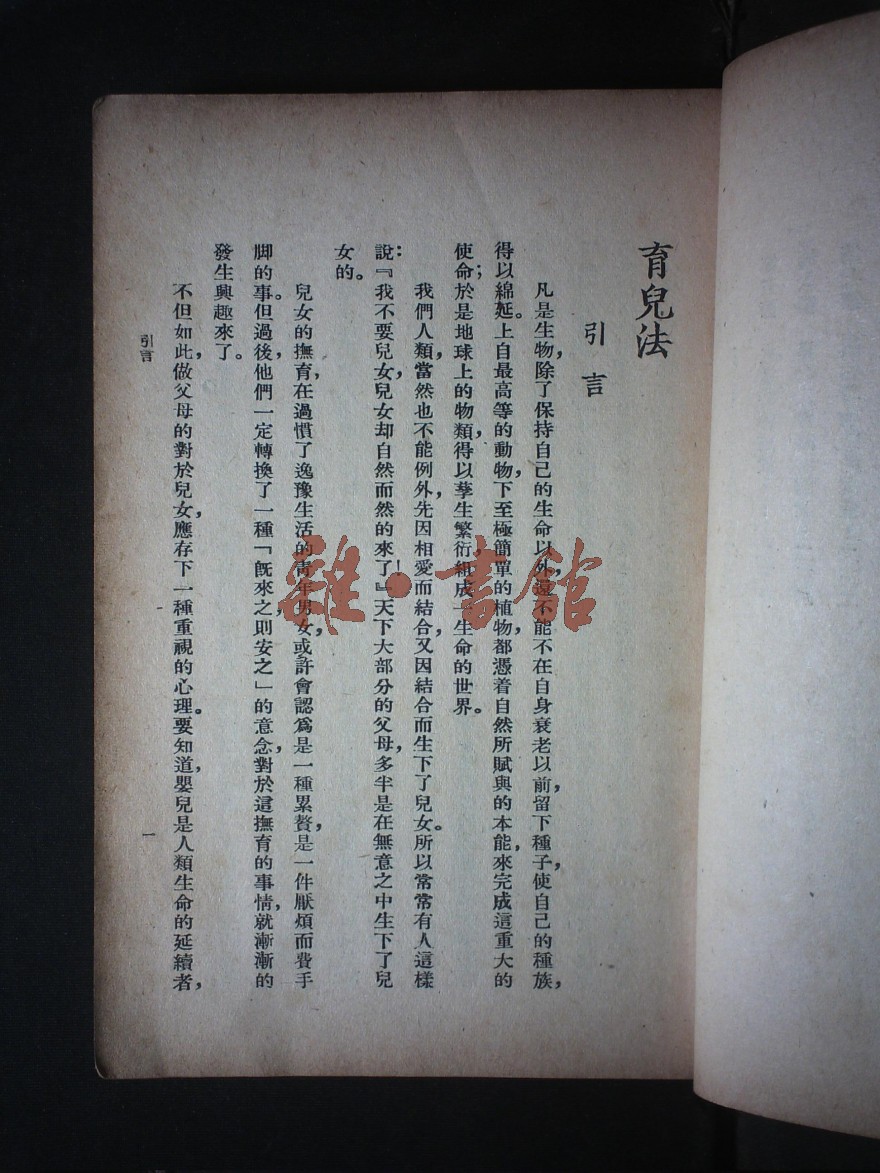 育兒法
引言
凡是生物，除了保持自己的生命以外，還不能不在自身衰老以前，留下種子，使自己的種族，
得以綿延。上自最高等的動物，下至極簡單的植物，都憑着自然所賦與的本能，來完成這重大的
使命；於是地球上的物類，得以孳生繁衍，組成一生命的世界。
我們人類，當然也不能例外，先因相愛而結合，又因結合而生下了兒女。所以常常有人這樣
說：『我不要兒女，兒女却自然而然的來了！』天下大部分的父母，多半是在無意之中生下了兒
女的。
兒女的撫育，在過慣了逸豫生活的青年男女，或許會認爲是一種累贅，是一件厭煩而費手
脚的事。但過後他們一定轉換了一種「旣來之，則安之」的意念，對於這撫育的事情，就漸漸的
發生興趣來了。
不但如此，做父母的對於兒女，應存下一種重視的心理。要知道，嬰兒是人類生命的延續者，
引言
一
雜·書館